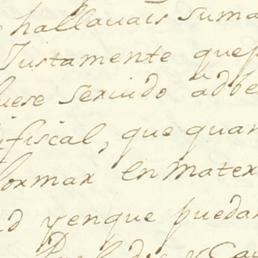 hallavais suma
Justamente que
uese sexuido adbe
fiscal, que quan
formax en matex
d yenque puedan